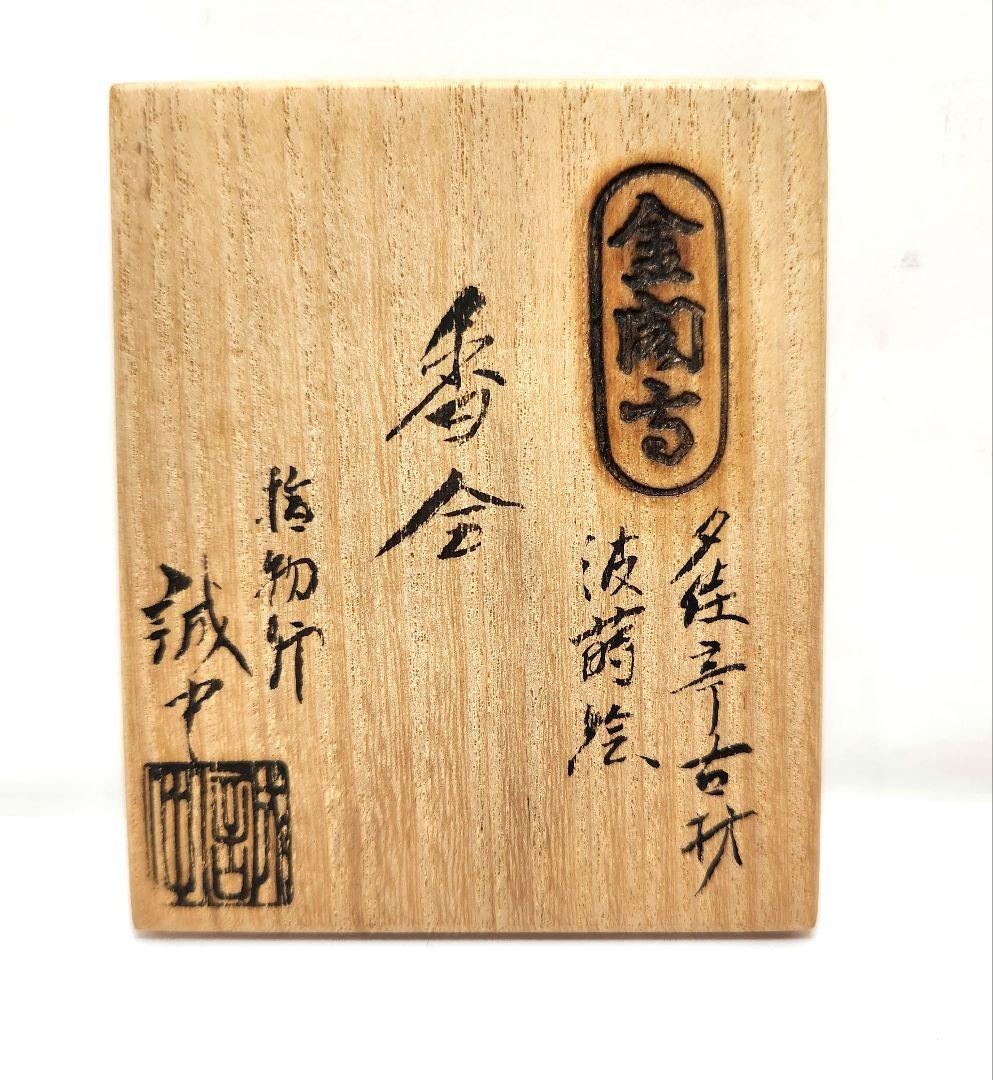 金閣寺
夕佳亭古材
波蒔絵
香合
指物師
誠中